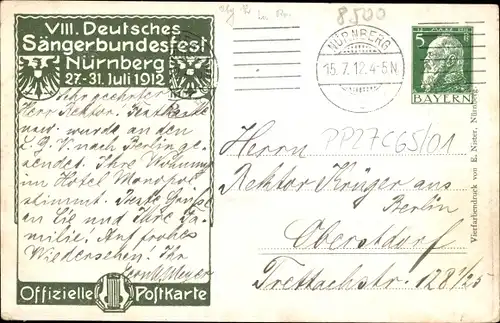 VIII. Deutsches
Sängerbundesfest
Nürnberg
27-31. Juli 1912
Sehr geehrter
Herr Rektor! Festkarte
usw. wurde an den
nach Berlin ge-
sendet. Ihre Wohnung
im Hotel Monopol
stimmt. Beste Grüße
an Sie und Ihre Fa-
milie! Auf frohes
Wiedersehen! Ihr
Meyer
Offizielle Postkarte
8500
NÜRNBERG
15.7.12.4-5N
5
BAYERN
PP27C65/01
Herrn
Rektor Krüger aus
Berlin
Oberstdorf
Trettachstr. 128 1/25
Vierfarbendruck von E. Nister, Nürnberg